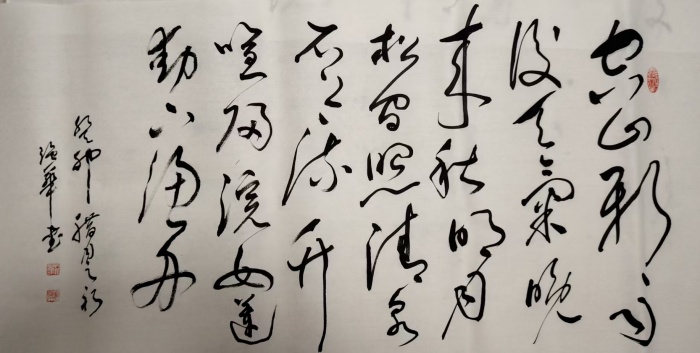 空山新雨
後天氣晚
來秋明月
松間照清泉
石上流竹
喧歸浣女蓮
動下漁舟
癸卯臘月之初
華書